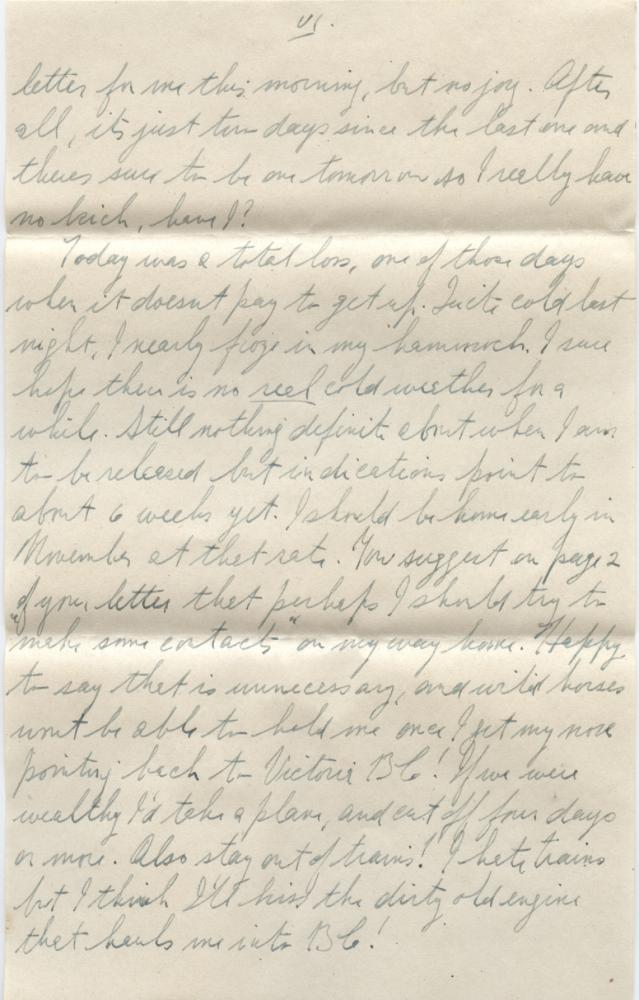 VI.
letter for me this morning, but no joy. After
all, its just two days since the last one and
theres sure to be one tomorrow so I really have
no kick, have I?
Today was a total loss, one of those days
when it doesnt pay to get up. Quite cold last
night, I nearly froze in my hammock. I sure
hope there is no real cold weather for a
while. Still nothing definite about when I am
to be released but indications point to
about 6 weeks yet. I should be home early in
November at that rate. You suggest on page 2
of your letter that perhaps I should try to
"make some contacts" on my way home. Happy
to say that is unnecessary, and wild horses
wont be able to hold me once I get my nose
pointing back to Victoria BC! If we were
wealthy I'd take a plane, and cut off four days
or more. Also stay out of trains! I hate trains
but I think I'll kiss the dirty old engine
that hauls me into BC!